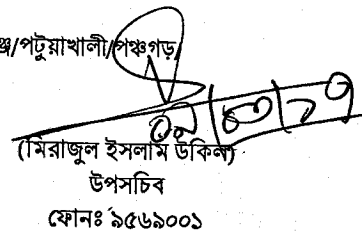 /পটুয়াখালী/পঞ্চগড়
(মিরাজুল ইসলাম উকিল)
উপসচিব
ফোনঃ ৯৫৬৯০০১